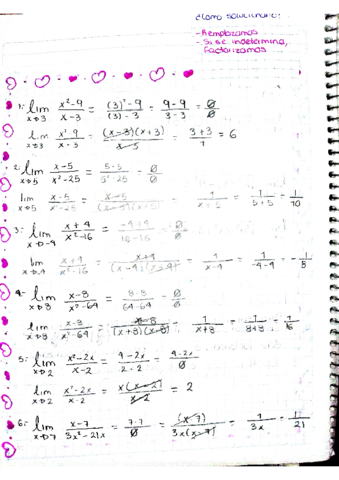 ¿Cómo solucionarlo?
- Remplazamos
- Si se indetermina, Factorizamos
1: lim x→3 (x²-9)/(x-3) = ((3)²-9)/((3)-3) = (9-9)/(3-3) = 0/0
lim x→3 (x²-9)/(x-3) = ((x-3)(x+3))/(x-3) = (3+3)/1 = 6
2: lim x→5 (x-5)/(x²-25) = (5-5)/(5²-25) = 0/0
lim x→5 (x-5)/(x²-25) = (x-5)/((x-5)(x+5)) = 1/(x+5) = 1/(5+5) = 1/10
3: lim x→-4 (x+4)/(x²-16) = (-4+4)/(16-16) = 0/0
lim x→-4 (x+4)/(x²-16) = (x+4)/((x-4)(x+4)) = 1/(x-4) = 1/(-4-4) = -1/8
4: lim x→8 (x-8)/(x²-64) = (8-8)/(64-64) = 0/0
lim x→8 (x-8)/(x²-64) = (x-8)/((x+8)(x-8)) = 1/(x+8) = 1/(8+8) = 1/16
5: lim x→2 (x²-2x)/(x-2) = (4-2x)/(2-2) = (4-2x)/0
lim x→2 (x²-2x)/(x-2) = (x(x-2))/(x-2) = 2
6: lim x→7 (x-7)/(3x²-21x) = (7-7)/0 = (x-7)/(3x(x-7)) = 1/3x = 1/21